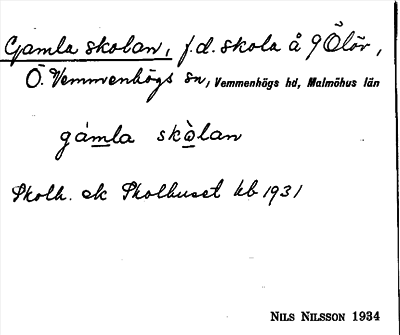 Gamla skolan, f.d. skola å 9 Ölör,
Ö. Vemmenhögs sn, Vemmenhögs hd, Malmöhus län
gámla skòlan
Skolh. ek Skolhuset kb 1931
NILS NILSSON 1934